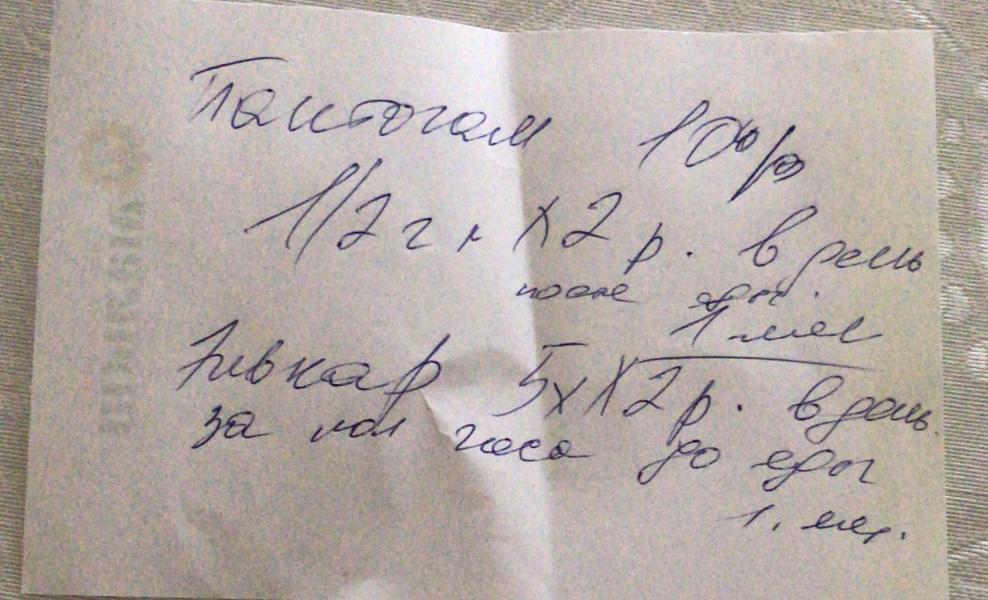 Пантогам 10%
1/2 г. х 2 р. в день
после еды.
1 мес
Элькар 5 х х 2 р. в день.
за пол часа до еды
1. мес.